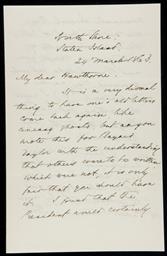 North Shore.
Staten Island.
24 March 1863.
My dear Hawthorne.
It is a very dismal
thing to have one's old letters
come back again like
uneasy ghosts, but as you
wrote this for Bayard
Taylor with the understanding
that others were to be written
which were not, it is only
fair that you should have
it. I found that the
President would certainly